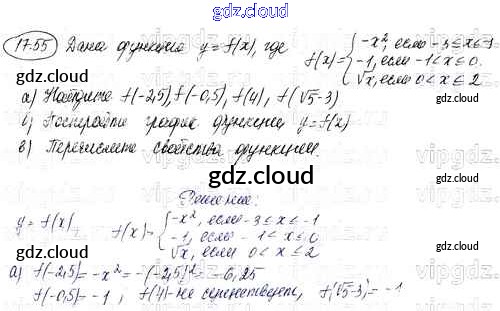 gdz.cloud
17.55 Дана функция y = f(x), где f(x) = { -x², если -3 ≤ x ≤ -1
-1, если -1 < x ≤ 0.
√x, если 0 < x ≤ 2
gdz.cloud gdz.cloud
а) Найдите f(-2,5), f(-0,5), f(4), f(√5-3)
б) Постройте график функции y = f(x)
в) Перечислите свойства функции.
gdz.cloud
Решение:
y = f(x), f(x) = { -x², если -3 ≤ x ≤ -1
-1, если -1 < x ≤ 0
√x, если 0 < x ≤ 2
gdz.cloud gdz.cloud
а) f(-2,5) = -x² = -(-2,5)² = -6,25
f(-0,5) = -1; f(4) - не существует, f(√5-3) = -1
gdz.cloud